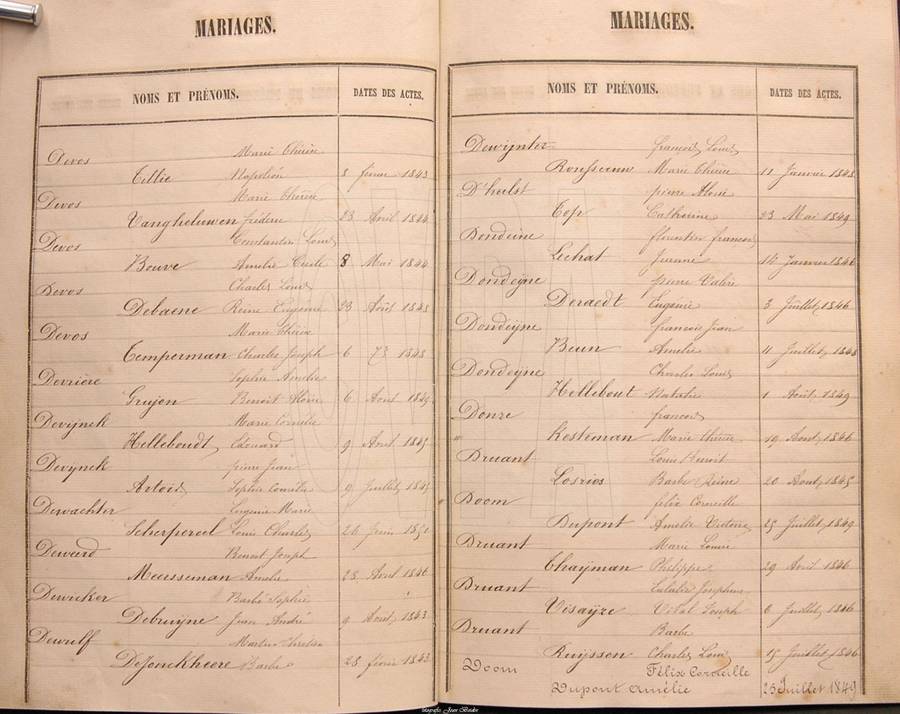 MARIAGES.
NOMS ET PRÉNOMS. DATES DES ACTES.
Devos Marie Thérèse
Tillie Napoléon 8 février 1843
Devos Marie Thérèse
Vangheluwen frédéric 23 Avril 1844
Devos Constantin Louis
Bouve Amelie Cécile 8 Mai 1844
Devos Charles Louis
Debaene Reine Eugénie 23 Août 1848
Devos Marie Thérèse
Temperman Charles Joseph 6 1848
Devrière Sophie Amelie
Grujon Benoit 6 Aout
Devijnck Marie Cornélie
Helleboudt Edouard 9 Avril 1845
Devynck pierre Jean
Artois Sophie Cornélie 9 Juillet
Dewachter Eugenie Marie
Scherpereel Louis Charles 26 Juin 1850
Deweerd Benoit Joseph
Meersseman Amelie 28 Avril 1846
Dewicker Barbe Sophie
Debruijne Jean André 9 Aout 1843
Dewulf
DeJonckheere Barbe 28 février 1843
MARIAGES.
NOMS ET PRÉNOMS. DATES DES ACTES.
Dewijnter françois Louis
Rousseauw Marie Thérèse 11 Janvier 1848
D'hulst pierre Aloïs
Top Catherine 23 Mai 1849
Dondeine florentin françois
Lechat 14 Janvier 1846
Dondeijne pierre Valère
Deraedt Eugenie 3 Juillet 1846
Dondeijne françois Jean
Beun Amelie 11 Juillet 1848
Dondeyne Charles Louis
Hellebout Natalie 1 Août 1849
Donze françois
Kesteman Marie Thérèse 19 Aout 1846
Druant Louis Benoit
Losrios Barbe Reine 20 Aout 1845
Doom félix Corneille
Dupont Amelie Victoire 25 Juillet 1849
Druant Marie Louise
Chaijman Philippe 29 Avril 1846
Druant Eulalie Josephine
Visaijre Vital Joseph 6 Juillet 1846
Druant Barbe
Ruijssen Charles Louis 15 Juillet 1846
Doom Félix Corneille
Dupont Amélie 25 Juillet 1849